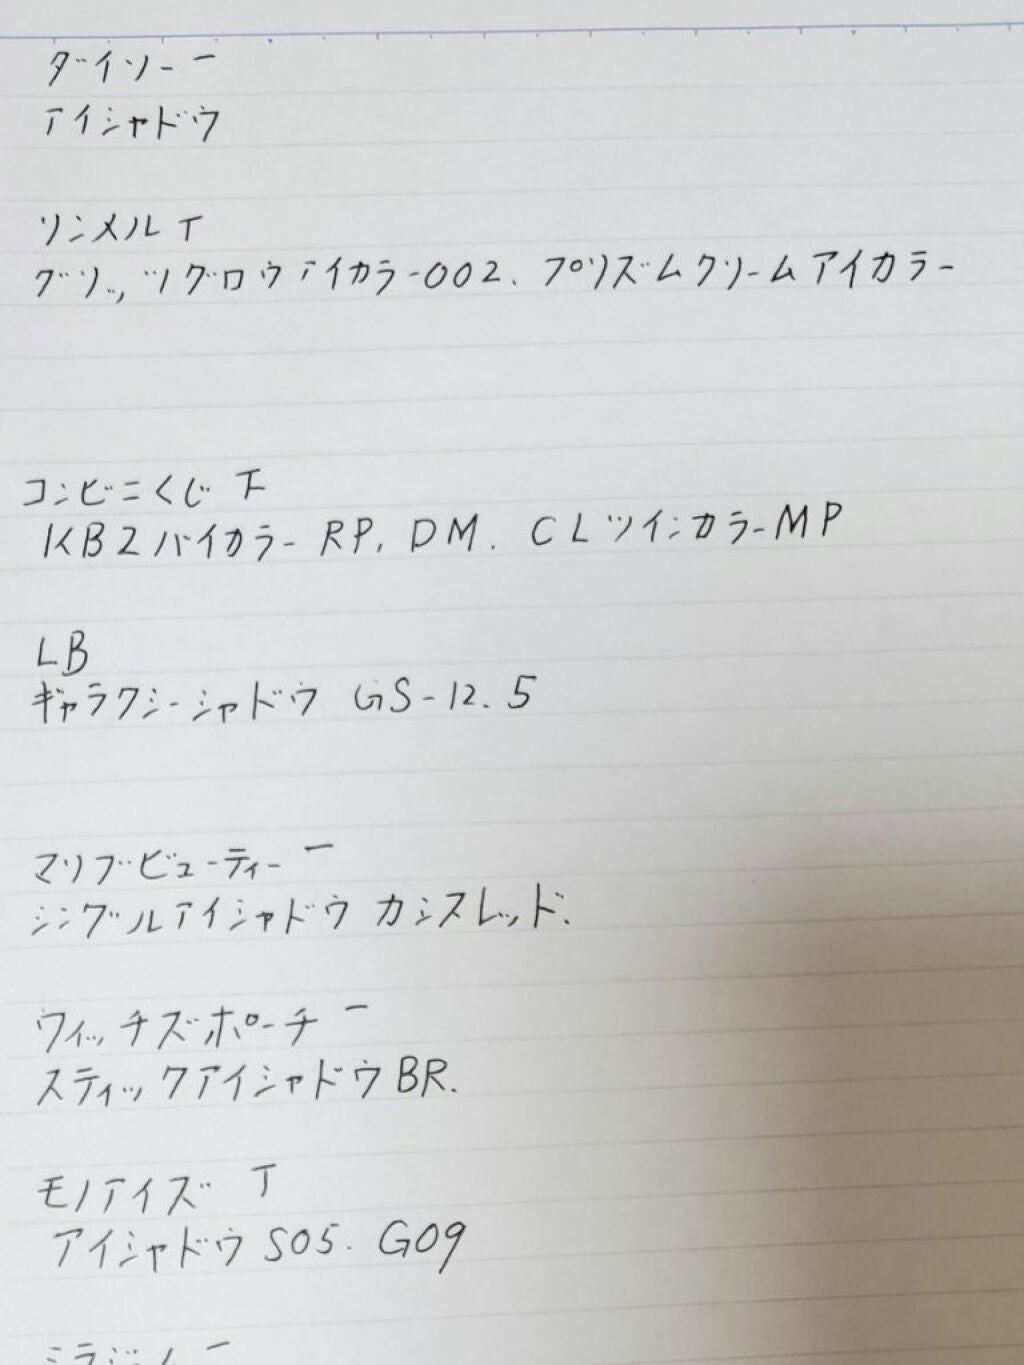 ダイソー 一
アイシャドウ
リンメル T
グリッツグロウアイカラー002. プリズムクリームアイカラー
コンビニくじ 下
KB2バイカラー RP. DM. CLツインカラーMP
LB
ギャラクシーシャドウ GS-12.5
マリブビューティー 一
シングルアイシャドウ カシスレッド.
ウィッチズポーチ 一
スティックアイシャドウBR.
モノアイズ T
アイシャドウS05. G09